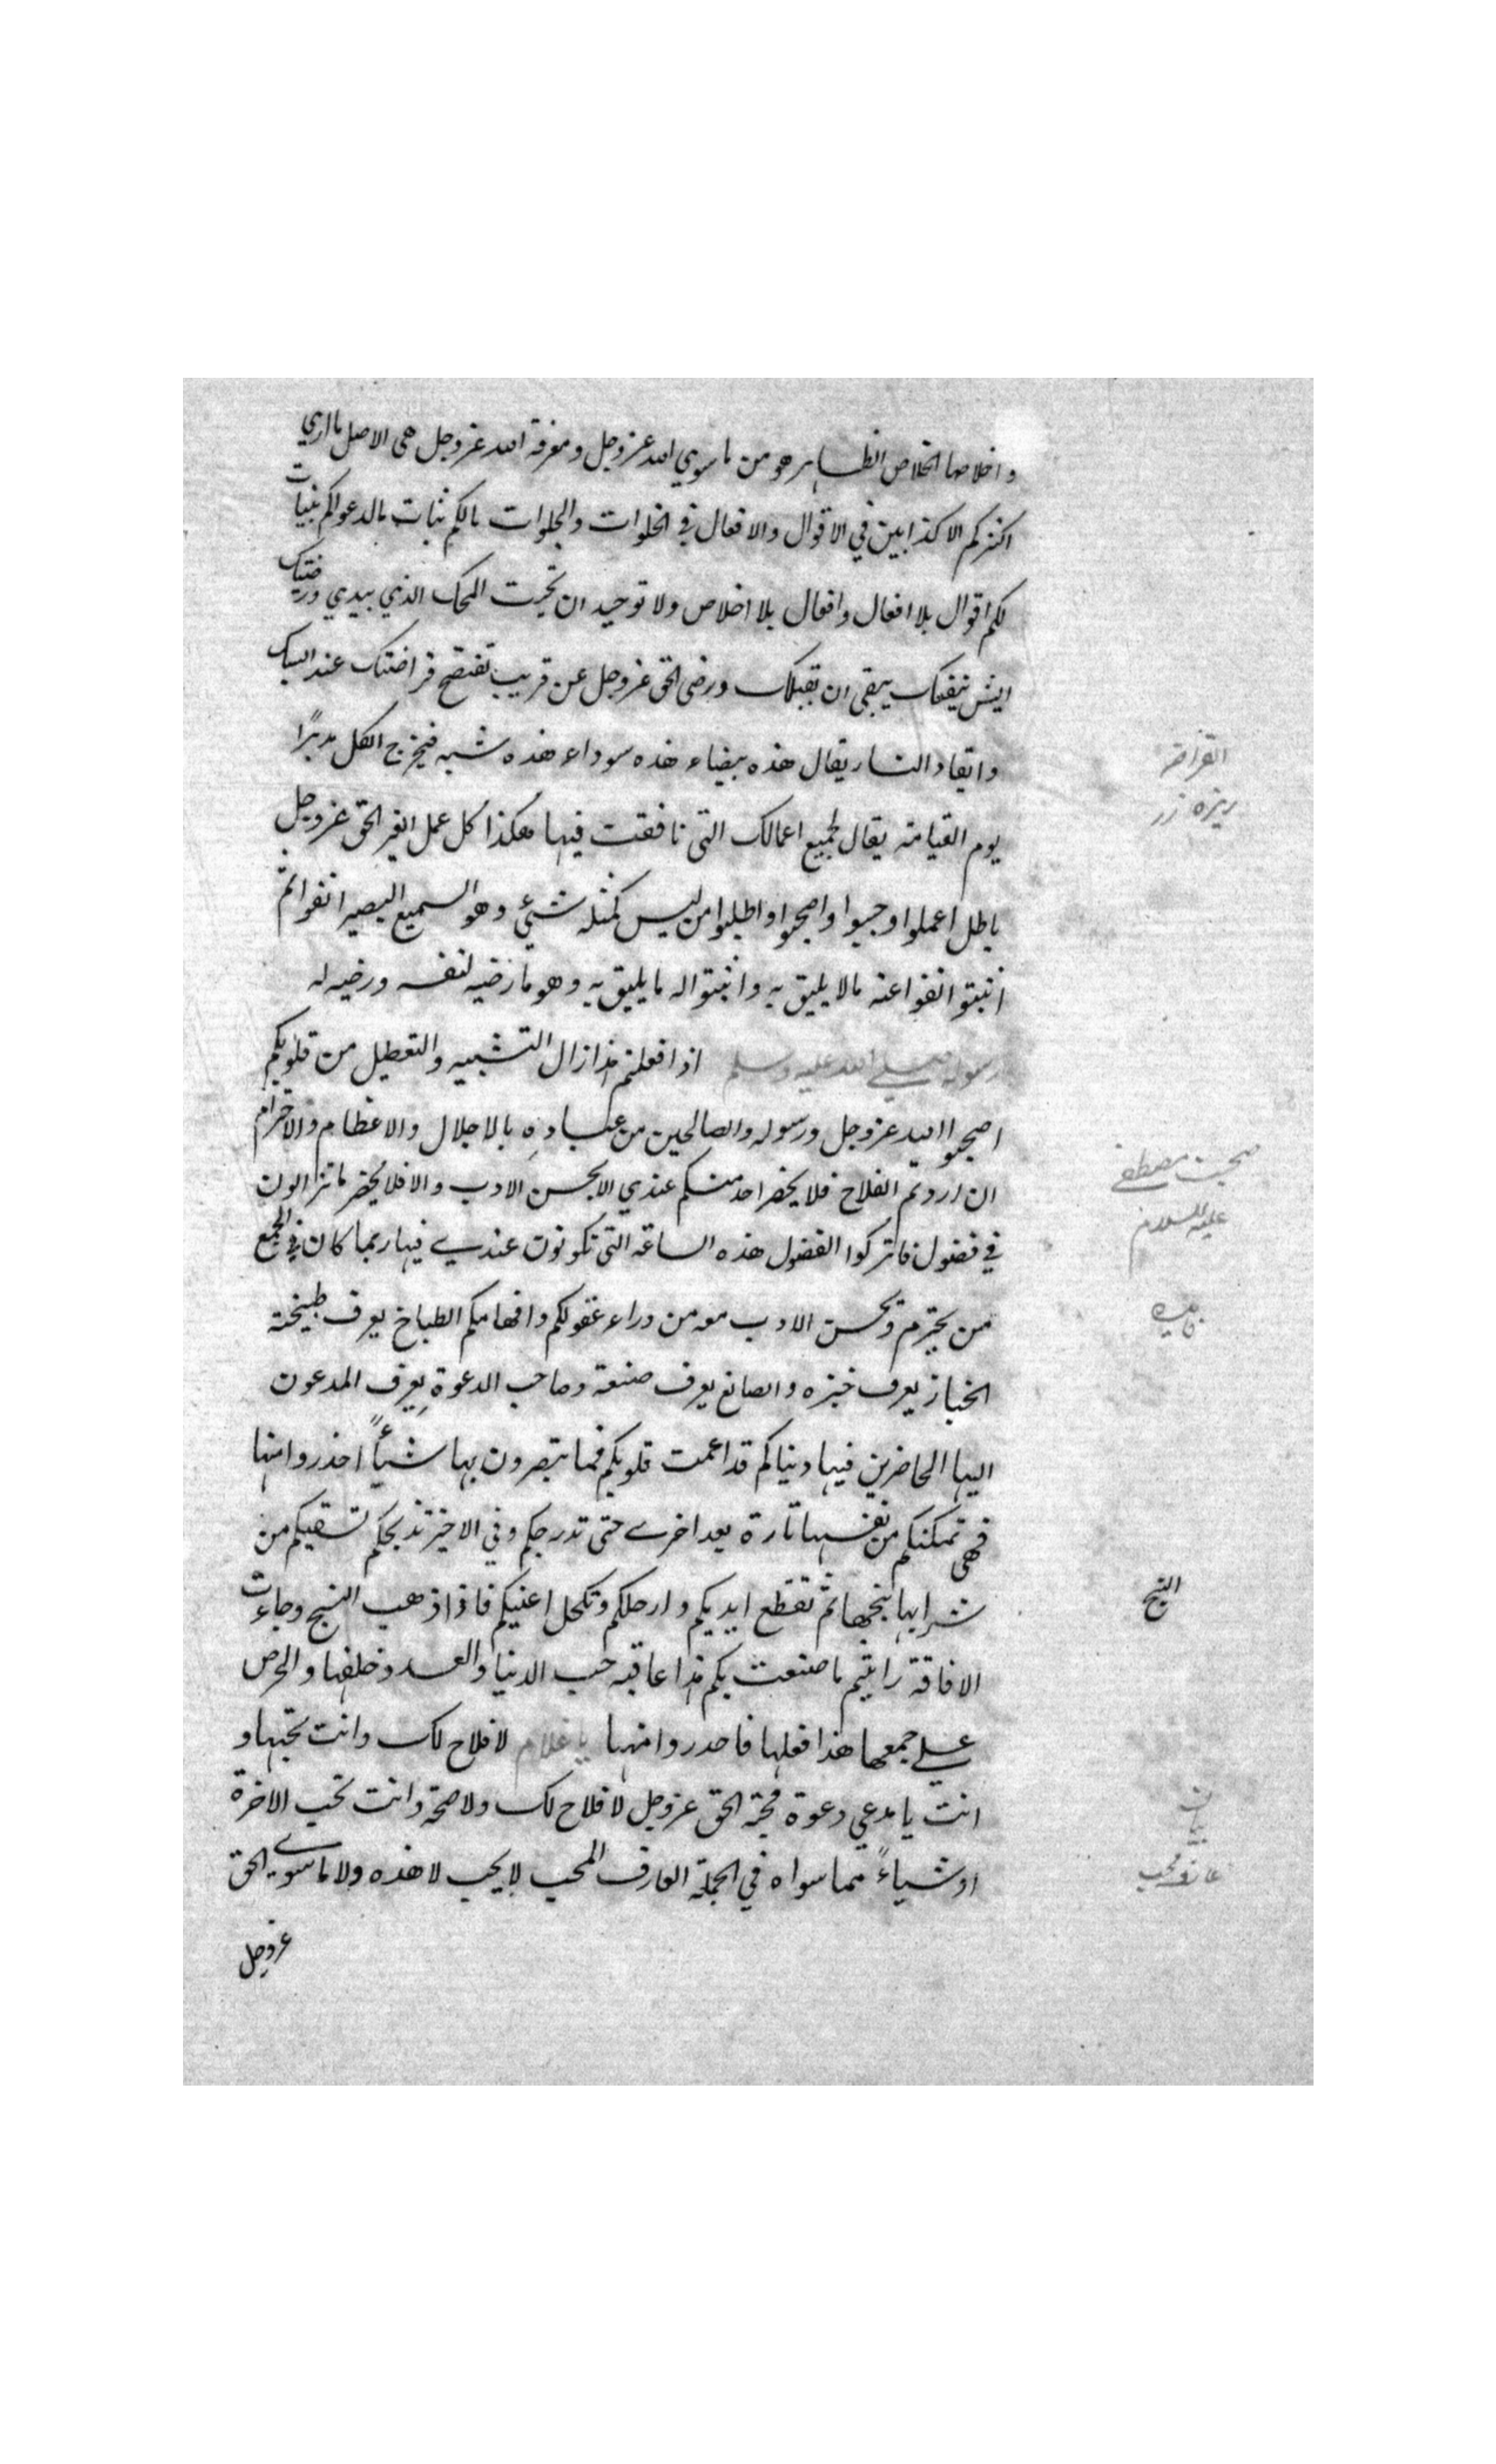 و اخلاصها اخلاص الظاهر هو من ما سوي الله عز وجل ومعرفة الله عز وجل هي الاصل ما اري
اكثركم الا كذابين في الاقوال والافعال في الخلوات والجلوات مالكم ثبات مالدعواكم بنيات
لكم اقوال بلا افعال وافعال بلا اخلاص ولا توحيد ان تجرت المحك الذي بيدي ورضيتك
ايش ينفعك يبقي ان تقبلك ورضي الحق عز وجل عن قريب تفتضح قراضتك عند السبك
وايقاد النار يقال هذه بيضاء هذه سوداء هذه شبه فيخرج الكل مدبرًا
يوم القيامة يقال لجميع اعمالك التي نافقت فيها هكذا كل عمل لغير الحق عز وجل
باطل اعملوا وحبوا واصحبوا واطلبوا من ليس كمثله شيئ وهو السميع البصير انفوا ثم
اثبتوا انفوا عنه مالا يليق به واثبتوا له ما يليق به وهو ما رضيه لنفسه ورضيه له
رسوله صلي الله عليه وسلم اذا فعلتم هذا زال التشبيه والتعطيل من قلوبكم
اصحبوا الله عز وجل ورسوله والصالحين من عباده بالاجلال والاعظام والاحترام
ان اردتم الفلاح فلا يحضر احد منكم عندي الا بحسن الادب والا فلا يحضر ما تزالون
في فضول فاتركوا الفضول هذه الساعة التي تكونون عندي فيها ربما كان في الجمع
من يحترم ويحسن الادب معه من وراء عقولكم وافهامكم الطباخ يعرف طبيخه
الخباز يعرف خبزه والصانع يعرف صنعة وصاحب الدعوة يعرف المدعون
اليها الحاضرين فيها دنياكم قد اعمت قلوبكم فما تبصرون بها شيأً احذروا منها
فهي تمكنكم من نفسها تارة بعد اخري حتي تدرجكم وفي الاخير تذبحكم تسقيكم من
شرابها بنجها ثم تقطع ايديكم وارجلكم وتكحل اعينكم فاذا ذهب البنج وجاءت
الافاقة رايتم ما صنعت بكم هذا عاقبة حب الدنيا والعدو خلفها والحرص
علي جمعها هذا فعلها فاحذروا منها يا غلام لا فلاح لك وانت تحبها و
انت يا مدعي دعوة محبة الحق عز وجل لا فلاح لك ولا صحة وانت تحب الاخرة
او شياءً مما سواه في الجملة العارف المحب لا يحب لا هذه ولا ما سوي الحق
عز وجل
القراضه
ريزه زر
صحبت مصطفي
عليه السلام
البنج
عارف محب